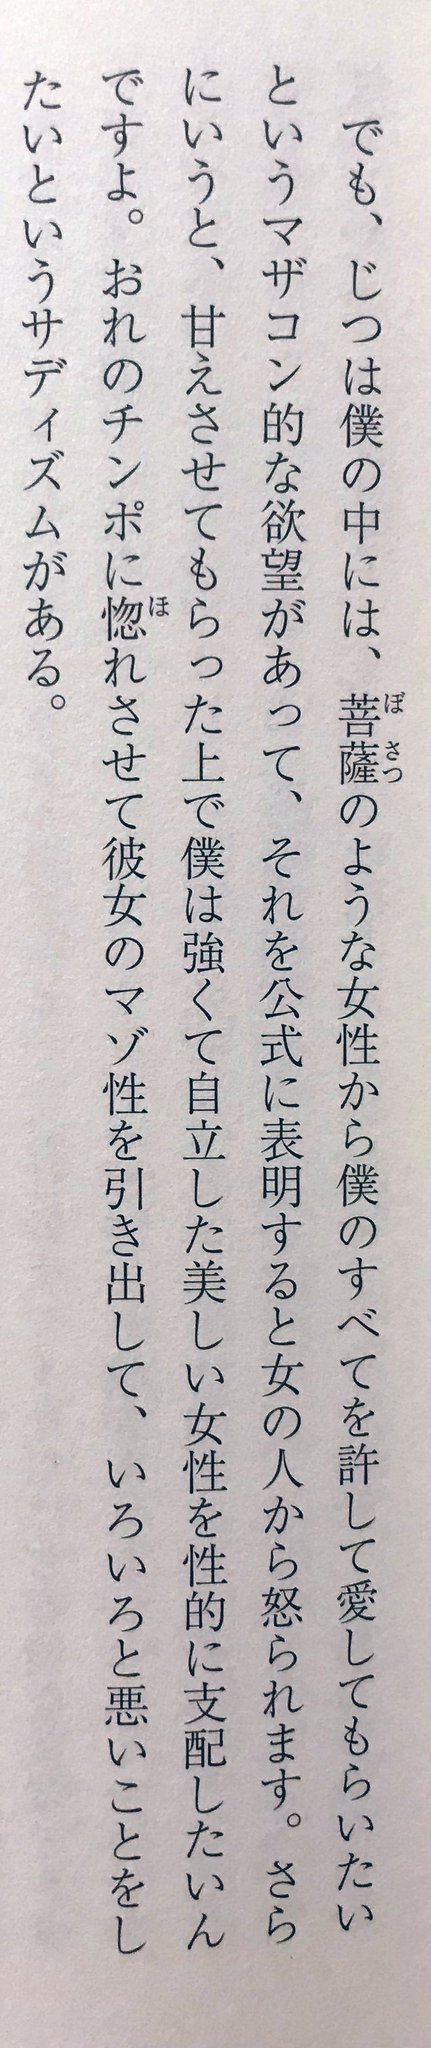 でも、じつは僕の中には、菩薩のような女性から僕のすべてを許して愛してもらいたい
というマザコン的な欲望があって、それを公式に表明すると女の人から怒られます。さら
にいうと、甘えさせてもらった上で僕は強くて自立した美しい女性を性的に支配したいん
ですよ。おれのチンポに惚れさせて彼女のマゾ性を引き出して、いろいろと悪いことをし
たいというサディズムがある。